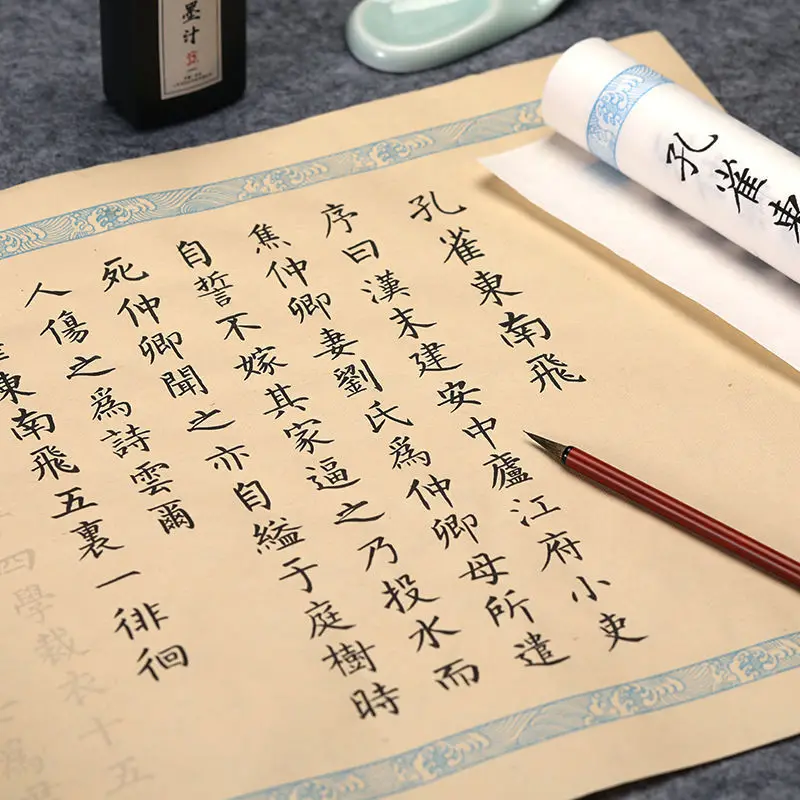 墨汁
孔雀東
孔雀東南飛
序曰漢末建安中廬江府小吏
焦仲卿妻劉氏爲仲卿母所遣
自誓不嫁其家逼之乃投水而
死仲卿聞之亦自縊于庭樹時
人傷之爲詩雲爾
東南飛五裏一徘徊
四學裁衣十五